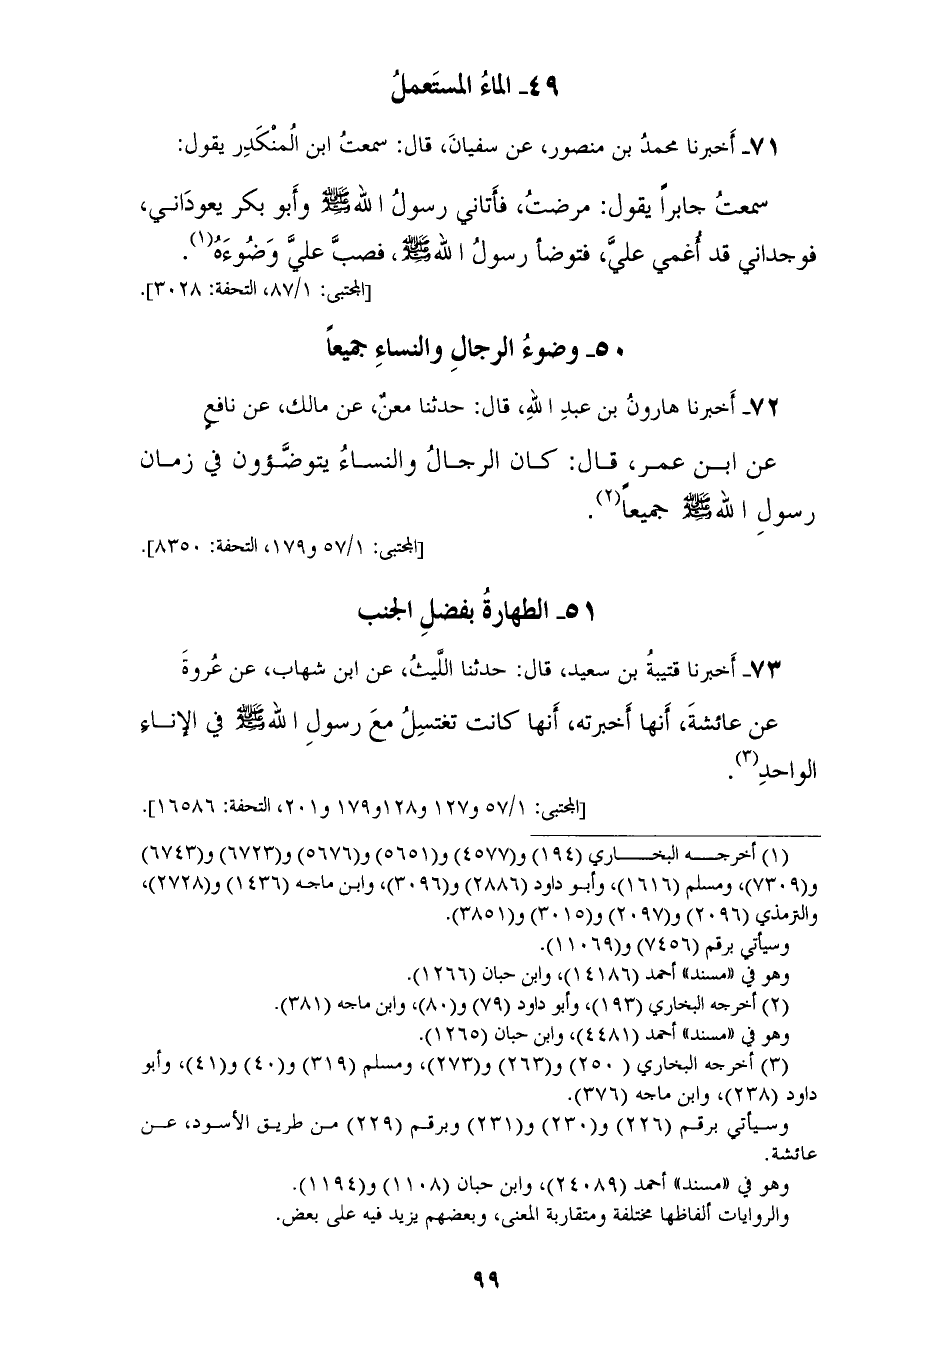 ٤٩ـ الماءُ المستَعملُ
٧١ـ أَخبرنا محمدُ بن منصور، عن سفيانَ، قال: سمعتُ ابن المُنْكَدِر يقول:
سمعتُ جابراً يقول: مرضتُ، فأَتاني رسولُ اللهﷺ وأَبو بكر يعودَاني،
فوجداني قد أُغمي عليَّ، فتوضأ رسولُ اللهﷺ، فصبَّ عليَّ وَضُوءَهُ(١).
[المجتبى: ٨٧/١، التحفة: ٣٠٢٨].
٥٠ـ وضوءُ الرجالِ والنساءِ جميعاً
٧٢ـ أَخبرنا هارونُ بن عبدِ اللهِ، قال: حدثنا معنٌ، عن مالك، عن نافعٍ
عن ابن عمر، قال: كان الرجالُ والنساءُ يتوضَّؤون في زمان
رسولِ اللهﷺ جميعاً(٢).
[المجتبى: ٥٧/١ و١٧٩، التحفة: ٨٣٥٠].
٥١ـ الطهارةُ بفضلِ الجنب
٧٣ـ أَخبرنا قتيبةُ بن سعيد، قال: حدثنا اللَّيثُ، عن ابن شهاب، عن عُروةَ
عن عائشةَ، أَنها أَخبرته، أَنها كانت تغتسِلُ معَ رسولِ اللهﷺ في الإناءِ
الواحدِ(٣).
[المجتبى: ٥٧/١ و١٢٧ و١٢٨و١٧٩ و٢٠١، التحفة: ١٦٥٨٦].
(١) أخرجه البخاري (١٩٤) و(٤٥٧٧) و(٥٦٥١) و(٥٦٧٦) و(٦٧٢٣) و(٦٧٤٣)
و(٧٣٠٩)، ومسلم (١٦١٦)، وأبو داود (٢٨٨٦) و(٣٠٩٦)، وابن ماجه (١٤٣٦) و(٢٧٢٨)،
والترمذي (٢٠٩٦) و(٢٠٩٧) و(٣٠١٥) و(٣٨٥١).
وسيأتي برقم (٧٤٥٦) و(١١٠٦٩).
وهو في «مسند» أحمد (١٤١٨٦)، وابن حبان (١٢٦٦).
(٢) أخرجه البخاري (١٩٣)، وأبو داود (٧٩) و(٨٠)، وابن ماجه (٣٨١).
وهو في «مسند» أحمد (٤٤٨١)، وابن حبان (١٢٦٥).
(٣) أخرجه البخاري ( ٢٥٠) و(٢٦٣) و(٢٧٣)، ومسلم (٣١٩) و(٤٠) و(٤١)، وأبو
داود (٢٣٨)، وابن ماجه (٣٧٦).
وسيأتي برقم (٢٢٦) و(٢٣٠) و(٢٣١) وبرقم (٢٢٩) من طريق الأسود، عن
عائشة.
وهو في «مسند» أحمد (٢٤٠٨٩)، وابن حبان (١١٠٨) و(١١٩٤).
والروايات ألفاظها مختلفة ومتقاربة المعنى، وبعضهم يزيد فيه على بعض.
٩٩